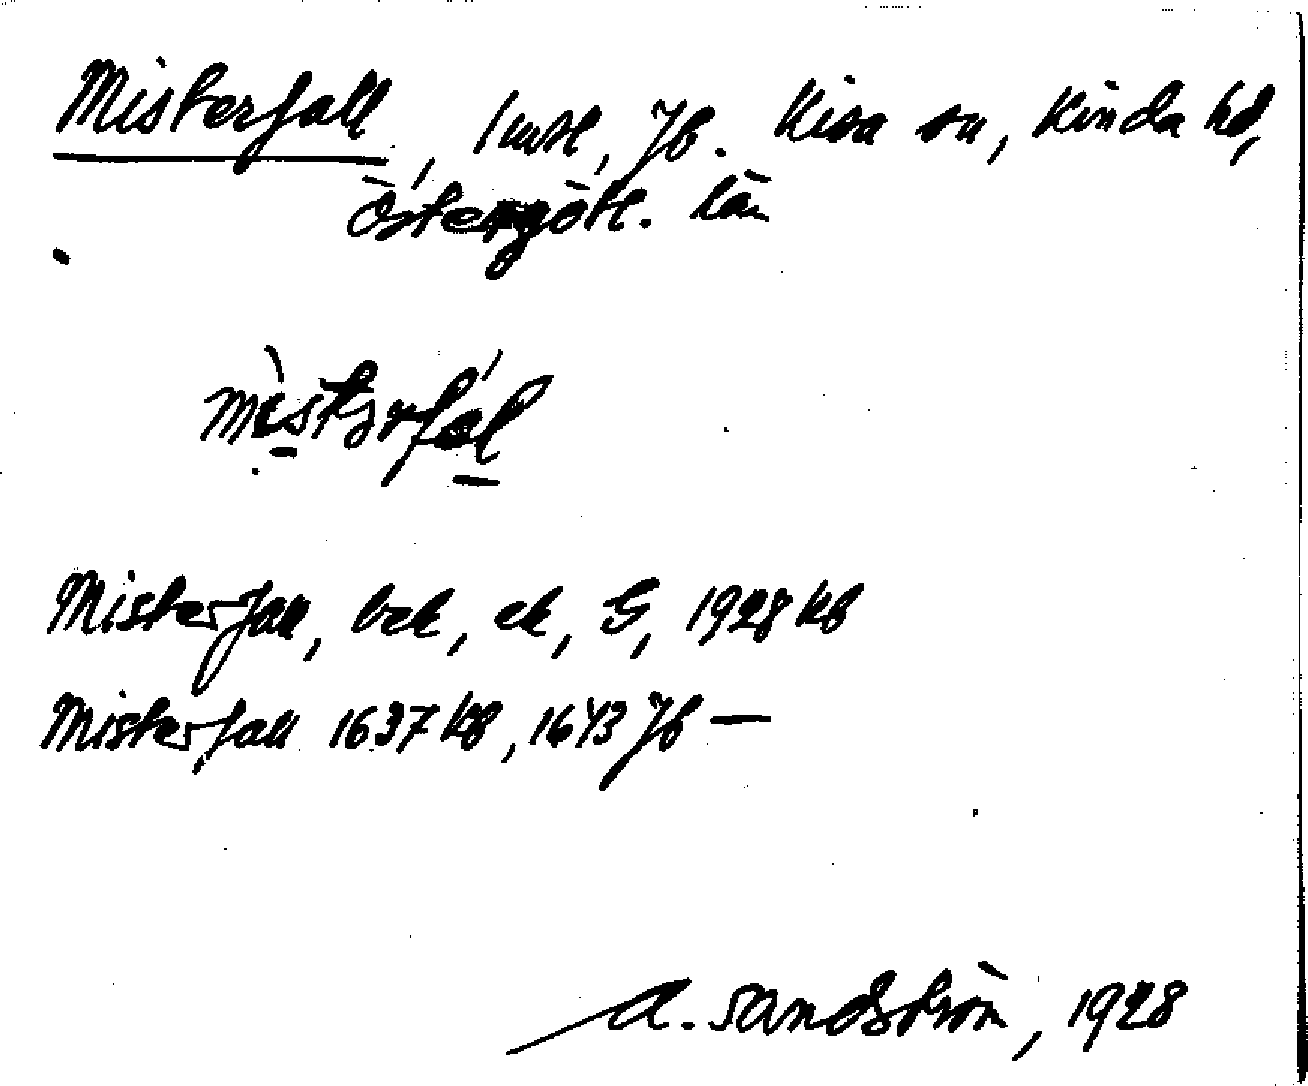 Misterfall, 1 msl, Jb. Kisa sn, Kinda hd,
Östergötl. län
mìstərfál
Misterfall, bel, el, G, 1928 kb
Misterfall 1637 kb, 1643 Jb —
A. Sandström, 1928